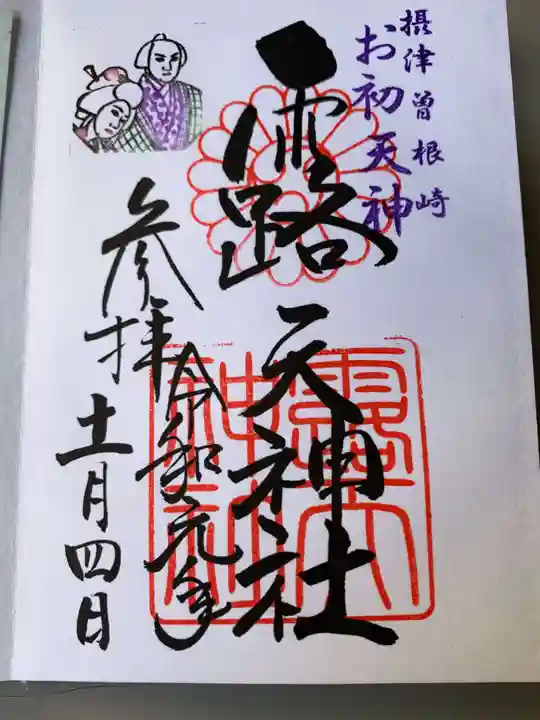 摂津曽根崎
お初天神
露天神社
令和元年
参拝
十一月四日
露天
神社